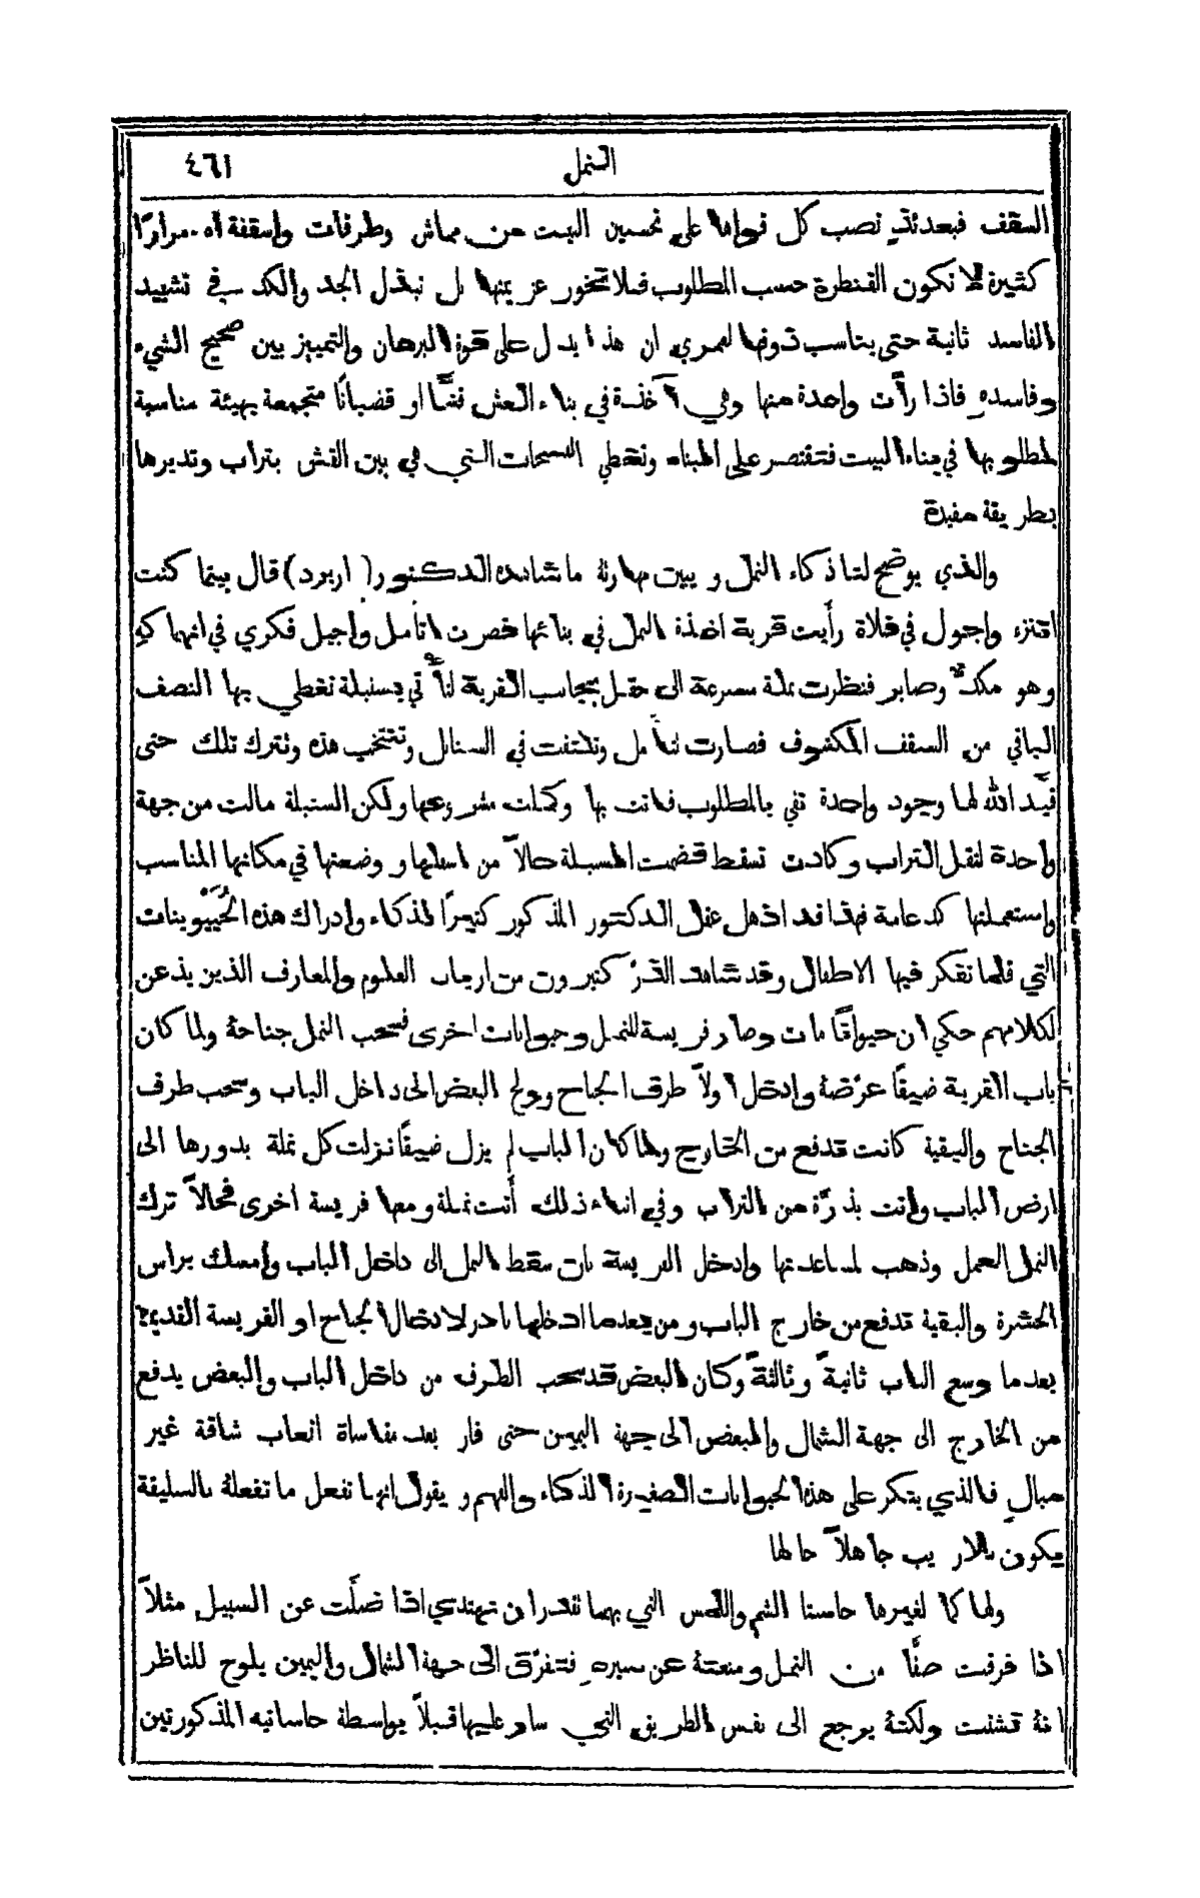 النمل
٤٦١
السقف فبعدئذٍ نصب كل قواها على تحسين البيت من مماشٍ وطرقات واسقفة اه. مرارًا
كثيرة لا تكون القنطرة حسب المطلوب فلا تخور عزيمتها بل تبذل الجد والكد في تشييد
الفاسد ثانية حتى يناسب ذوقها لعمري ان هذا يدل على قوة البرهان والتمييز بين صحيح الشيء
وفاسدهِ فاذا رأت واحدة منها وهي آخذة في بناء العش قشًّا او قضبانًا متجمعة بهيئة مناسبة
لمطلوبها في بناء البيت فتقتصر على البناء وتغطي الفسحات التي هي بين القش بتراب وتديرها
بطريقة مفيدة
والذي يوضح لنا ذكاء النمل ويبين مهارتهُ ما شاهده الدكتور (اربرد) قال بينما كنت
اتنزه واجول في فلاة رأيت قرية اخذة النمل في بنائها فصرت اتأمل واجيل فكري في انهماكهِ
وهو مكدٌّ وصابر فنظرت نملة مسرعة الى حقل بجانب القرية لتأتي بسنبلة تغطي بها النصف
الباقي من السقف المكشوف فصارت تتأمل وتلتفت في السنابل وتنتخب هذه وتترك تلك حتى
قيَّد الله لها وجود واحدة تفي بالمطلوب فاتت بها وكملت مشروعها ولكن السنبلة مالت من جهة
واحدة لثقل التراب وكادت تسقط قضمت السنبلة حالاً من اسفلها ووضعتها في مكانها المناسب
واستعملتها كدعامة فهذا قد اذهل عقل الدكتور المذكور كثيرًا لذكاء وادراك هذه الحُيَيْوينات
التي قلما تفكر فيها الاطفال وقد شاهد القرَّ كثيرون من ارباب العلوم والمعارف الذين يذعن
لكلامهم حكي ان حيوانًا مات وصار فريسة للنمل وحيوانات اخرى فسحب النمل جناحهُ ولما كان
باب القرية ضيقًا عرَّضهُ وادخل اولاً طرف الجناح وولج البعض الى داخل الباب وسحب طرف
الجناح والبقية كانت تدفع من الخارج ولما كان الباب لم يزل ضيقًا نزلت كل نملة بدورها الى
ارض الباب واتت بذرَّة من التراب وفي اثناء ذلك أتت نملة ومعها فريسة اخرى فحالاً ترك
النمل العمل وذهب لمساعدتها وادخل الفريسة بان سقط النمل الى داخل الباب وامسك براس
الحشرة والبقية تدفع من خارج الباب ومن بعدما ادخلها بادر لادخال الجناح او الفريسة القديمة
بعدما وسع الباب ثانيةً وثالثةً وكان البعض قد سحب الطرف من داخل الباب والبعض يدفع
من الخارج الى جهة الشمال والبعض الى جهة اليمين حتى فاز بعد مقاساة اتعاب شاقة غير
مبالٍ فالذي ينكر على هذه الحيوانات الصغيرة الذكاء والفهم ويقول انها تفعل ما تفعلهُ بالسليقة
يكون بلا ريب جاهلاً حالها
ولها كما لغيرها حاستا الشم واللمس التي بهما تقدر ان تهتدي اذا ضلَّت عن السبيل مثلاً
اذا فرقت صفًّا من النمل ومنعتهُ عن سيرهِ فتفرَّق الى جهة الشمال واليمين يلوح للناظر
انهُ تشتت ولكنهُ يرجع الى نفس الطريق التي سار عليها قبلاً بواسطة حاستيه المذكورتين